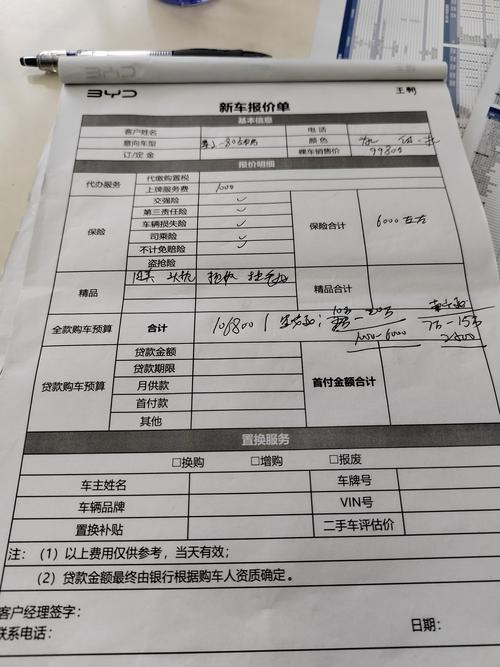 BYD 王朝
新车报价单
基本信息
客户姓名 电话
意向车型 颜色
订/定金 裸车销售价 99800
报价明细
代办服务 代缴购置税
上牌服务费 1000
保险 交强险 ✓ 保险合计 6000左右
第三责任险 ✓
车辆损失险 ✓
司乘险 ✓
不计免赔险 ✓
盗抢险
精品 精品合计
全款购车预算 合计 106800
7万-15万
1000-6000
贷款购车预算 贷款金额 首付金额合计
贷款期限
月供款
首付款
其他
置换服务
□换购 □增购 □报废
车主姓名 车牌号
车辆品牌 VIN号
置换补贴 二手车评估价
注：（1）以上费用仅供参考，当天有效；
（2）贷款金额最终由银行根据购车人资质确定。
客户经理签字：
联系电话： 日期：